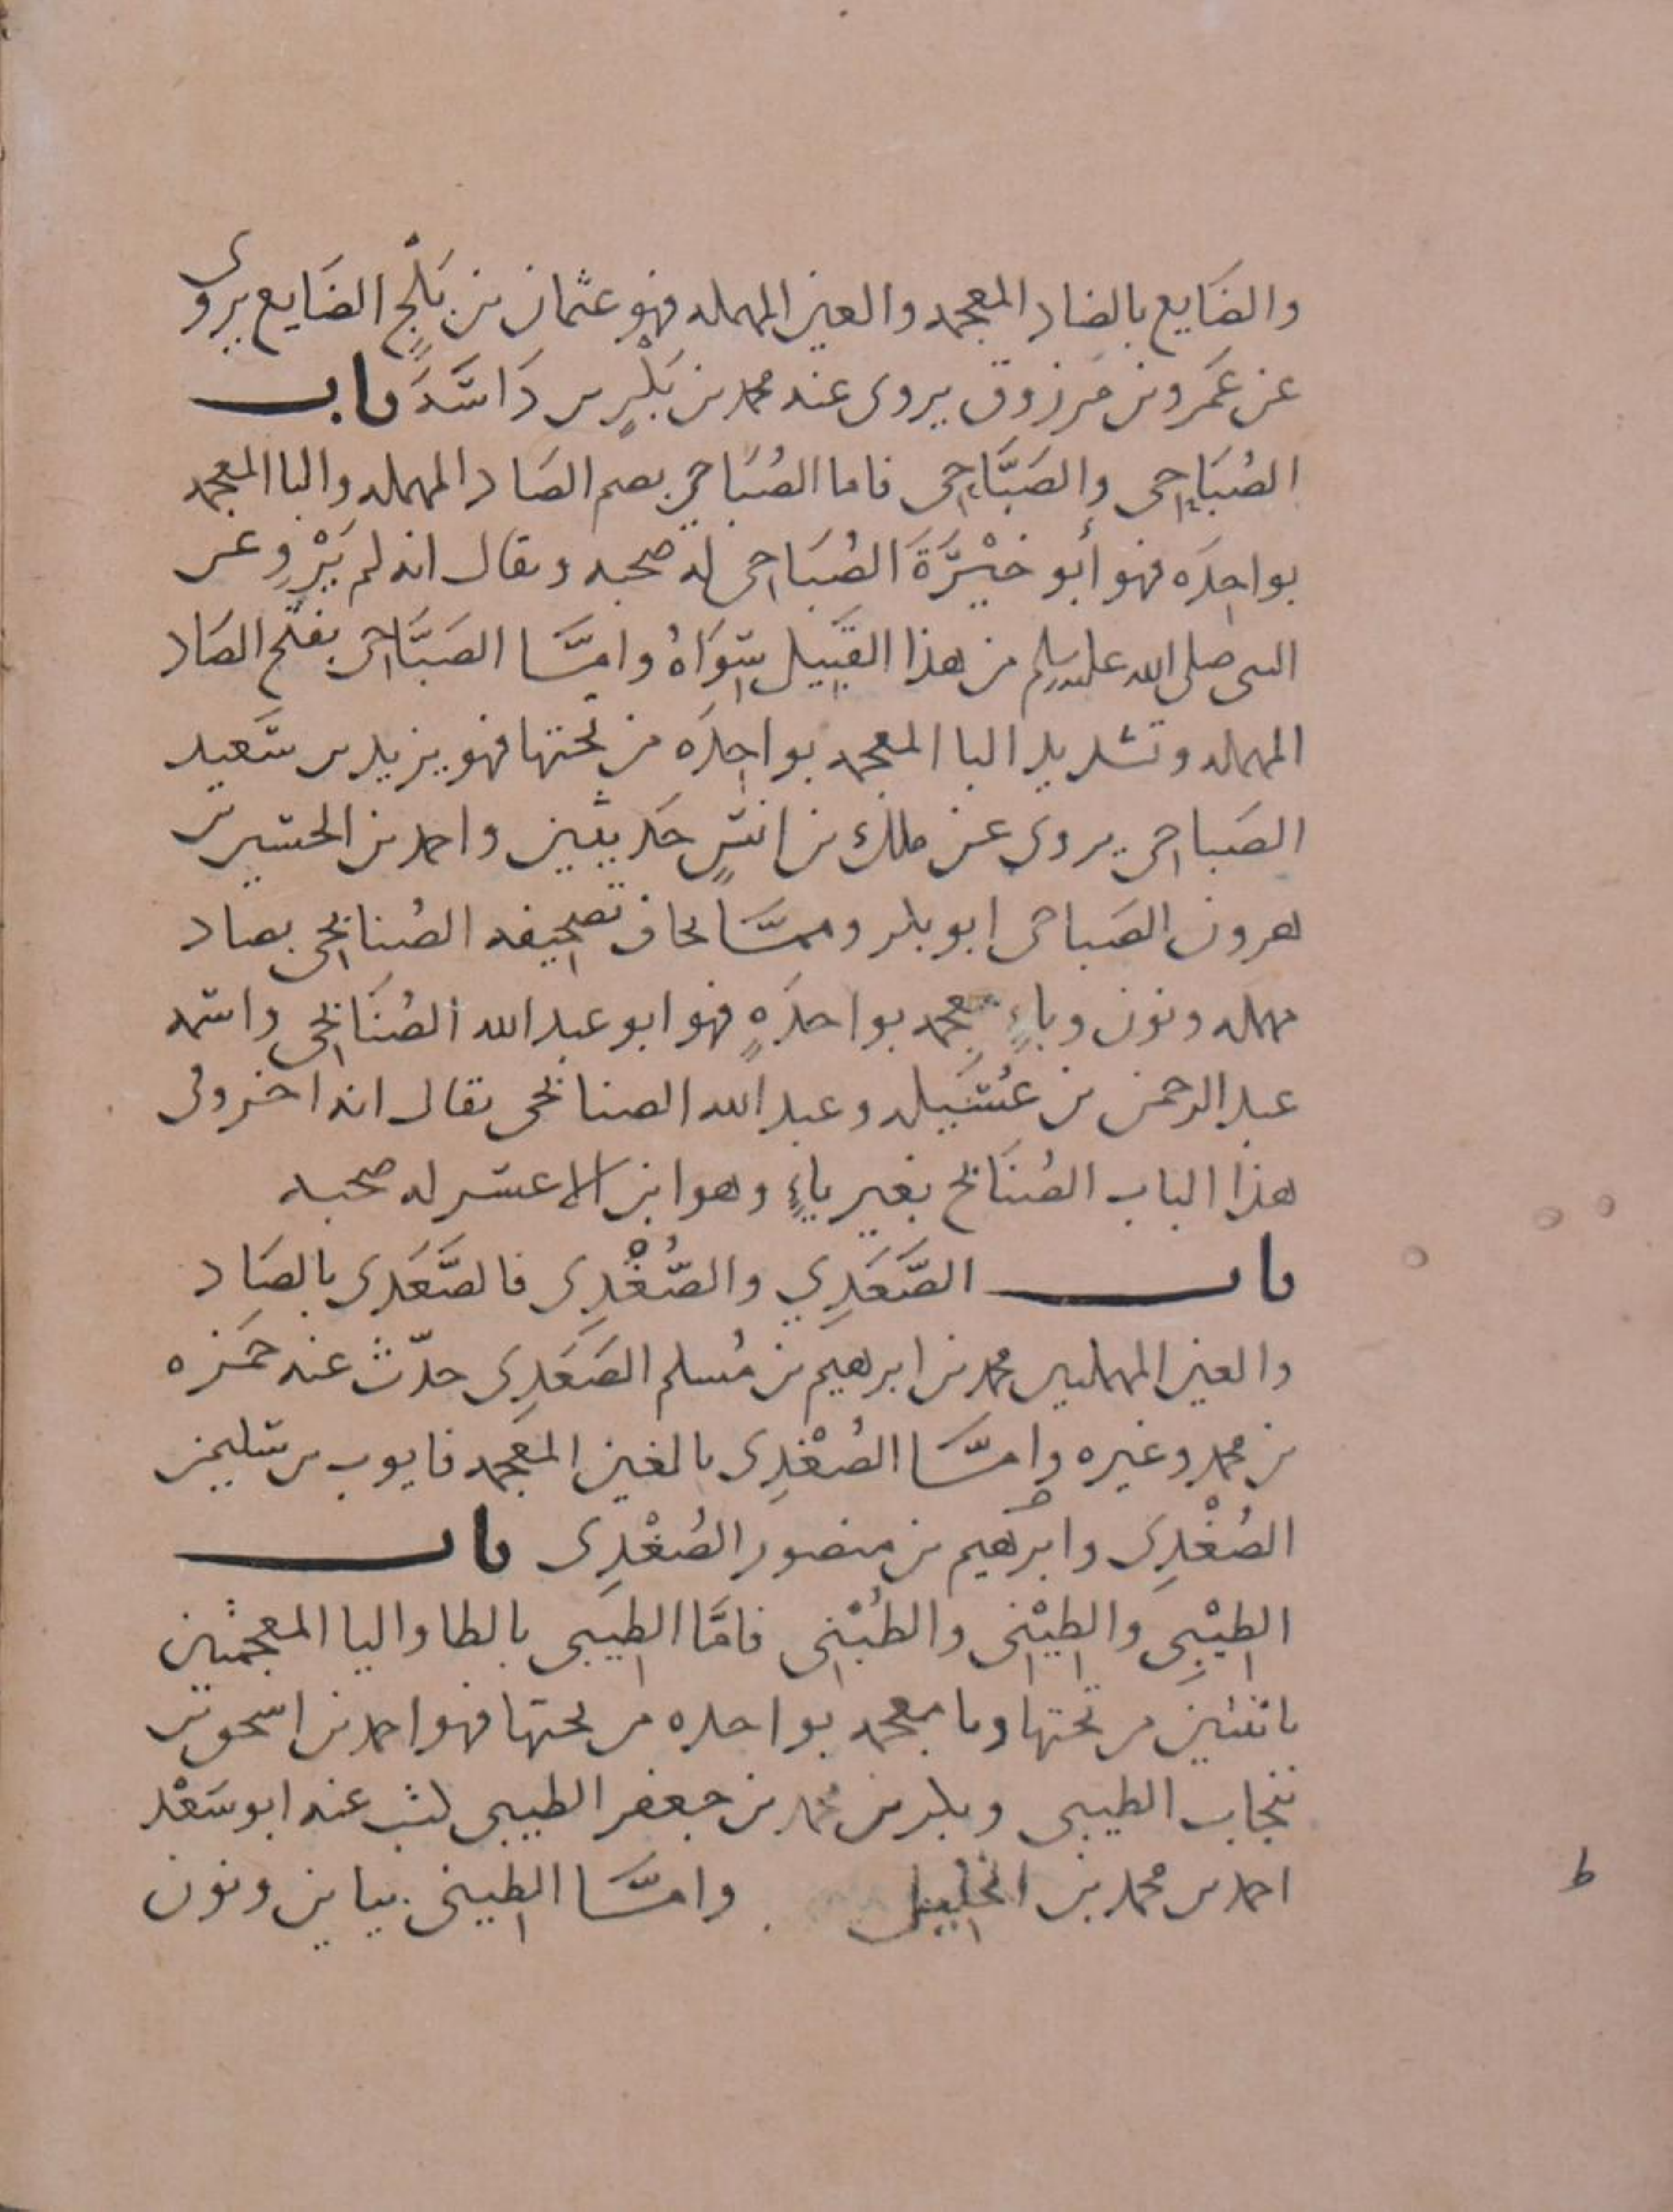 والضَايع بالضاد المعجمه والعين المهمله فهو عثمان بن بَلْجٍ الضَايع يروى
عن عَمَرو بن مَرزوق يروى عنه محمد بن بَكْرٍ بن دَاسَةَ باب
الصُبَاحى والصَبَّاحى فاما الصُبَاحى بضم الصَاد المهمله والبا المعجمه
بواحِدَه فهو أبو خَيْرَةَ الصُبَاحى له صحبه ويقال انه لم يَرْوِ عن
النبى صلى الله عليه وسلم من هذا القَبِيل سِوَاهُ وامّا الصَبَّاحى بفتح الصَاد
المهمله وتشديد البا المعجمه بواحِدَه من تحتها فهو يزيد بن سَعيد
الصَباحى يروى عن ملك بن انسٍ حَديثين واحمد بن الحسين بن
هرون الصَباحى ابو بكر وممّا يخاف تصحِيفه الصُنابحى بصاد
مهمله ونون وباءٍ معجمه بواحدَهٍ فهو ابو عبد الله الصُنَابحى واسمه
عبد الرحمن بن عُسَيله وعبد الله الصنابحى يقال انه اخر وفى
هذا الباب الصُنَابح بغير ياءٍ وهو ابن الاعسر له صحبه
باب الصَّعَدِي والصُّغْدِى فالصَّعَدِى بالصَاد
والعين المهملتين محمد بن ابرهيم بن مُسلم الصَعَدِى حدّث عنه حمَزه
بن محمد وغيره وامّا الصُغْدِى بالغين المعجمه فايوب بن سُليمن
الصُغْدِى وابرهيم بن منصور الصُغْدِى باب
الطِيْبِى والطِيْنِى والطُبْنِى فامَّا الطِيبى بالطا واليا المعجمتين
باثنتين من تحتها وبا معجمه بواحده من تحتها فهو احمد بن اسحق بن
نيخاب الطيبى وبكر بن محمد بن جعفر الطيبى كتب عنه ابو سَعْد
احمد بن محمد بن الخليل وامّا الطِينى بيا ين ونون
ط